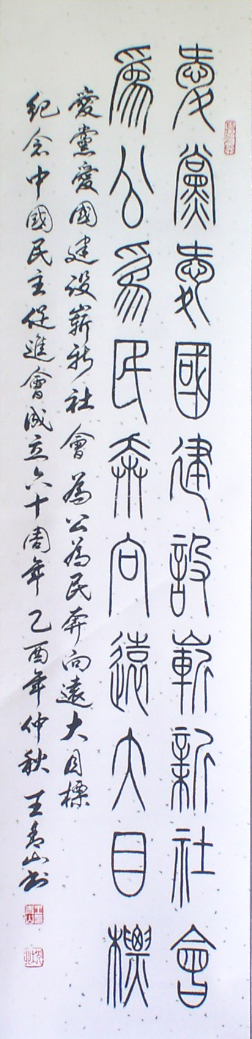 愛黨愛國建設嶄新社會
為公為民奔向遠大目標
愛黨愛國建設嶄新社會為公為民奔向遠大目標
紀念中國民主促進會成立六十周年乙酉年仲秋王青山书